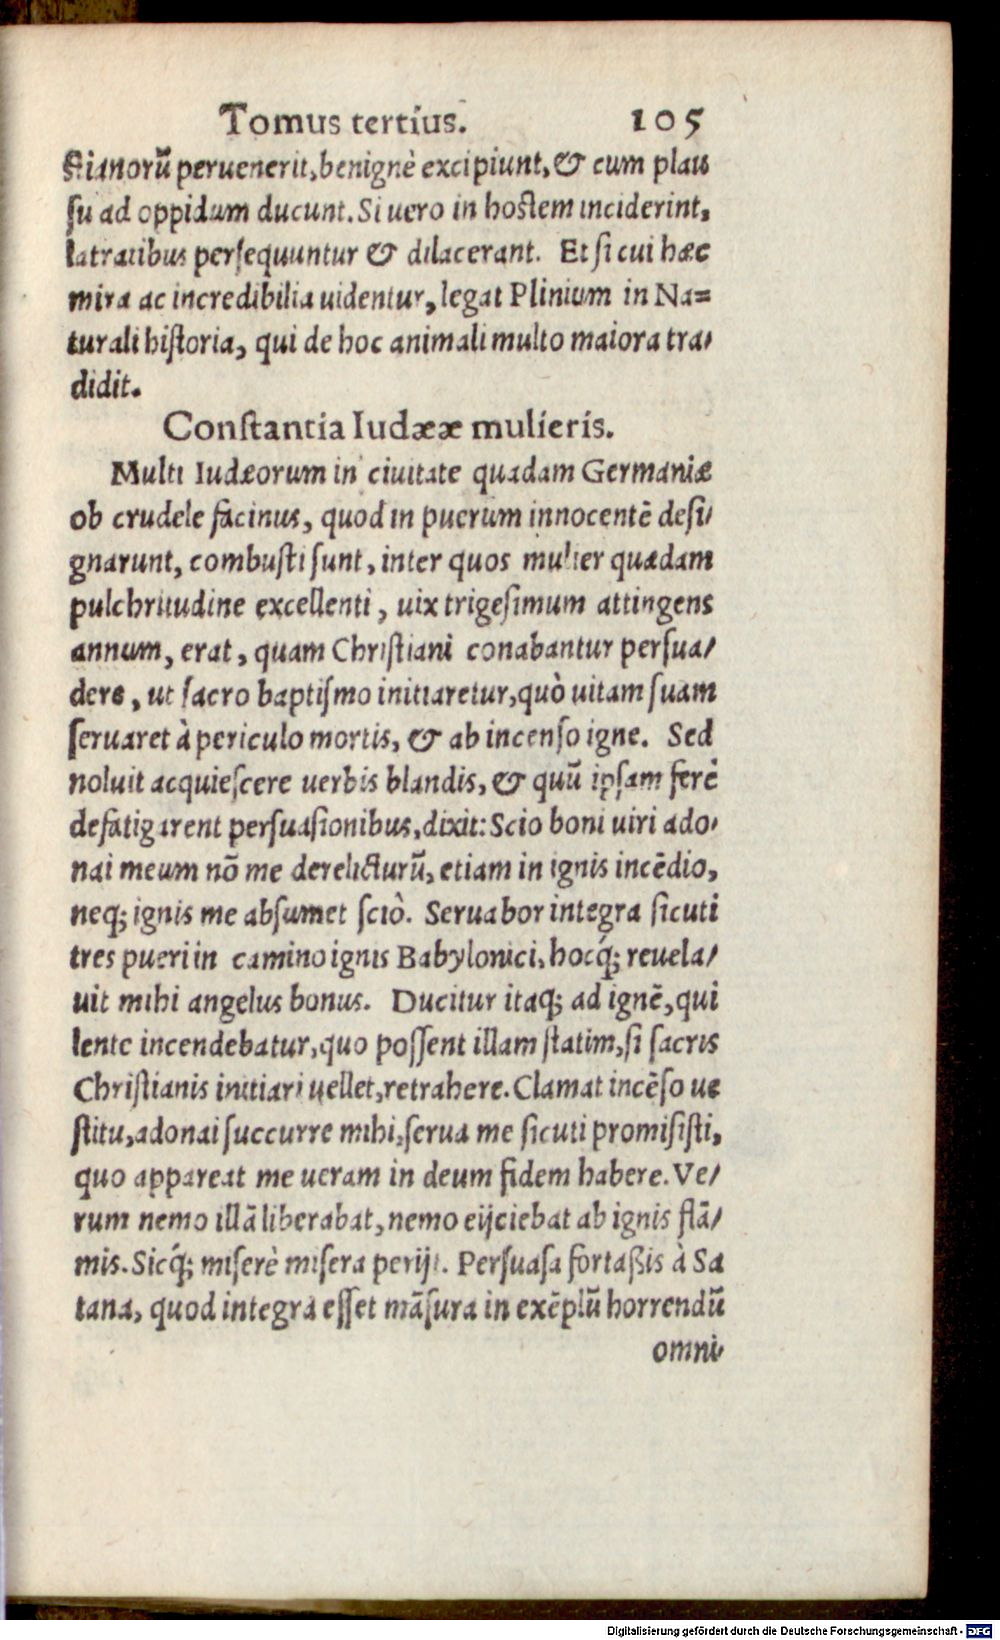 Tomus tertius. 105
stianorũ peruenerit, benignè excipiunt, & cum plau
su ad oppidum ducunt. Si uero in hostem inciderint,
latratibus persequuntur & dilacerant. Et si cui hæc
mira ac incredibilia uidentur, legat Plinium in Na=
turali historia, qui de hoc animali multo maiora tra/
didit.
Constantia Iudææ mulieris.
Multi Iudæorum in ciuitate quadam Germaniæ
ob crudele facinus, quod in puerum innocentẽ desi/
gnarunt, combusti sunt, inter quos mulier quædam
pulchritudine excellenti, uix trigesimum attingens
annum, erat, quam Christiani conabantur persua/
dere, ut sacro baptismo initiaretur, quò uitam suam
seruaret à periculo mortis, & ab incenso igne. Sed
noluit acquiescere uerbis blandis, & quũ ipsam ferè
defatigarent persuasionibus, dixit: Scio boni uiri ado/
nai meum nõ me derelicturũ, etiam in ignis incẽdio,
neq; ignis me absumet sciò. Seruabor integra sicuti
tres pueri in camino ignis Babylonici, hocq́; reuela/
uit mihi angelus bonus. Ducitur itaq; ad ignẽ, qui
lente incendebatur, quo possent illam statim, si sacris
Christianis initiari uellet, retrahere. Clamat incẽso ue
stitu, adonai succurre mihi, serua me sicuti promisisti,
quo appareat me ueram in deum fidem habere. Ve/
rum nemo illã liberabat, nemo eijciebat ab ignis flã/
mis. Sicq́; miserè misera perijt. Persuasa fortaßis à Sa
tana, quod integra esset mãsura in exẽplũ horrendũ
omni/
Digitalisierung gefördert durch die Deutsche Forschungsgemeinschaft - DFG